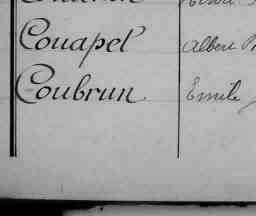 Couapel Albert
Coubrun. Emile